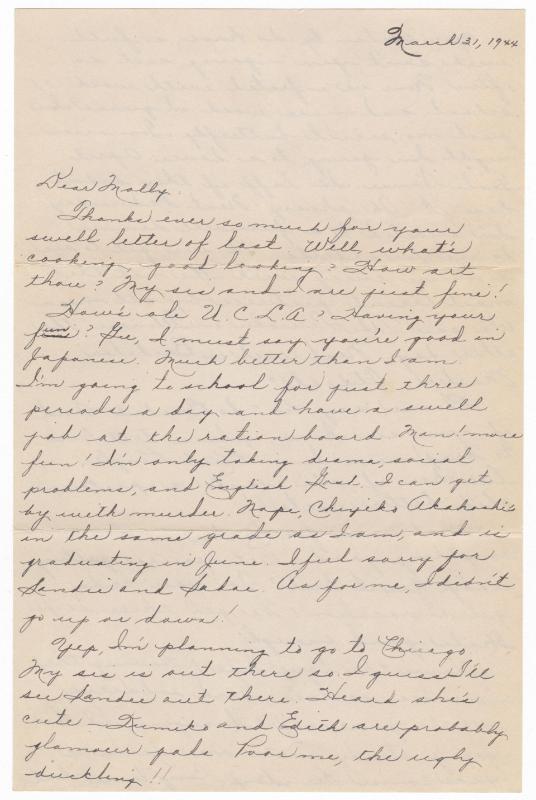 March 21, 1944
Dear Molly,
Thanks ever so much for your
swell letter of last. Well, what's
cooking, good looking? How art
thou? My sis and I are just fine!
How's ole U.C.L.A? Having your
fun? Gee, I must say you're good in
Japanese. Much better than I am.
I'm going to school for just three
periods a day and have a swell
job at the ration board. Man! more
fun! I'm only taking drama, social
problems, and English Gosh, I can get
by with murder. Nope, Chiyeko Akahoshi's
in the same grade as I am, and is
graduating in June. I feel sorry for
Sandie and Sakae. As for me, I didn't
go up or down!
Yep, I'm planning to go to Chicago
My sis is out there so I guess I'll
see Sandie out there. Heard she's
cute — Kumiko and Edith are probably
glamour pals Poor me, the ugly
duckling!!